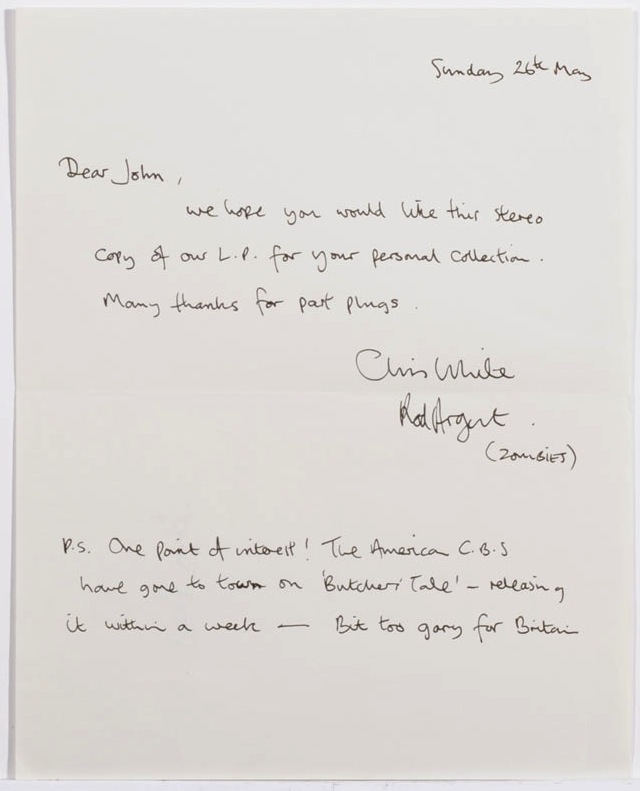 Sunday 26th May
Dear John,
we hope you would like this stereo
copy of our L.P. for your personal collection.
Many thanks for past plugs.
Chris White
Rod Argent.
(ZOMBIES)
P.S. One point of interest! The American C.B.S
have gone to town on 'Butchers' Tale' – releasing
it within a week — Bit too gory for Britain